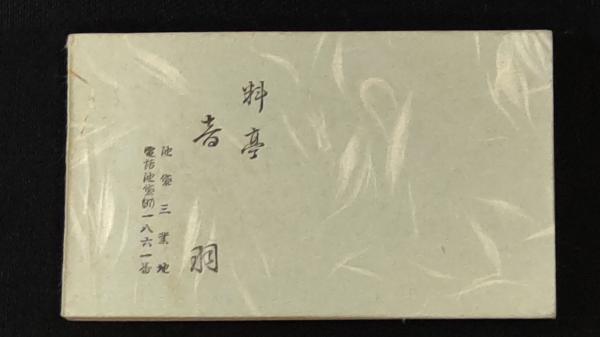 料亭
音羽
池袋三業地
電話池袋(97)一八六一番